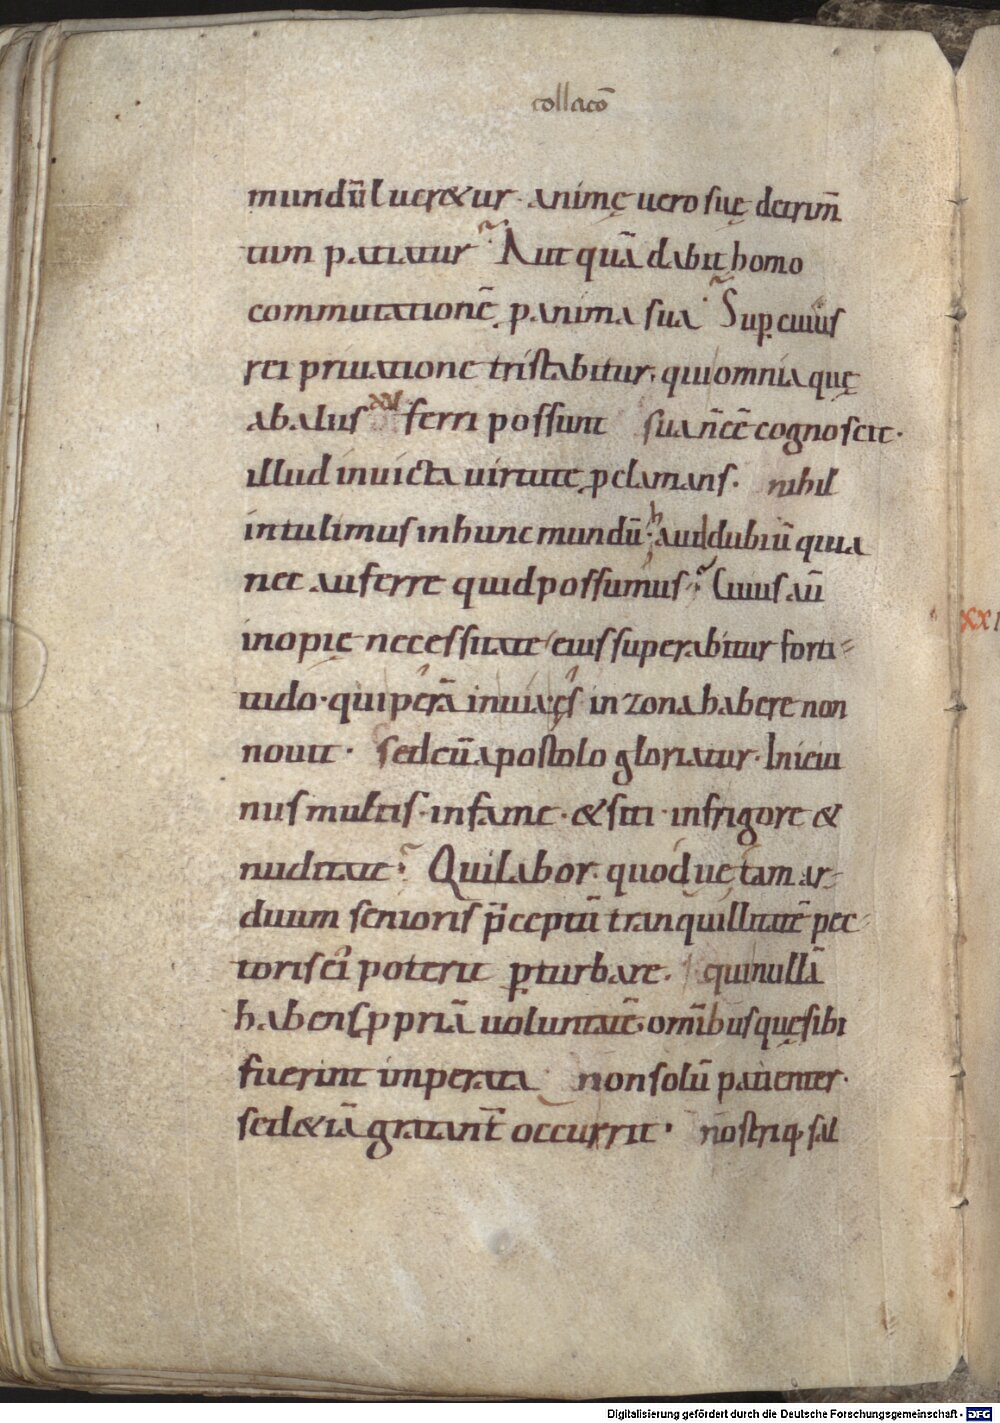 collacō
mundū lucret&ur · animę uero suę detrim̄
tum patiatur? Aut quā dabit homo
commutationē p anima sua? Sup cuius
rei priuatione tristabitur, qui omnia quę
ab aliis ferri possunt sua n̄ ēē cognoscit ·
illud inuicta uirtute pclamans · nihil
intulimus in hunc mundū · haud dubiū quia
nec auferre quid possumus? Cuius aū
inopię necessitate eius superabitur forti-
tudo · qui perā in uia · ęs in zona habere non
nouit · sed cū apostolo gloriatur · In ieiu
nus multis · in fame · & siti · in frigore &
nuditate? Qui labor · quod ue tam ar-
duum senioris p̄ceptū tranquillitatē pec-
toris ei poterit pturbare. qui nullā
habens ppriā uoluntatē · om̄ibus quę sibi
fuerint imperata non solū patienter ·
sed &iā gratant̄ occurrit · nostriq, sal
XXI
Digitalisierung gefördert durch die Deutsche Forschungsgemeinschaft - DFG